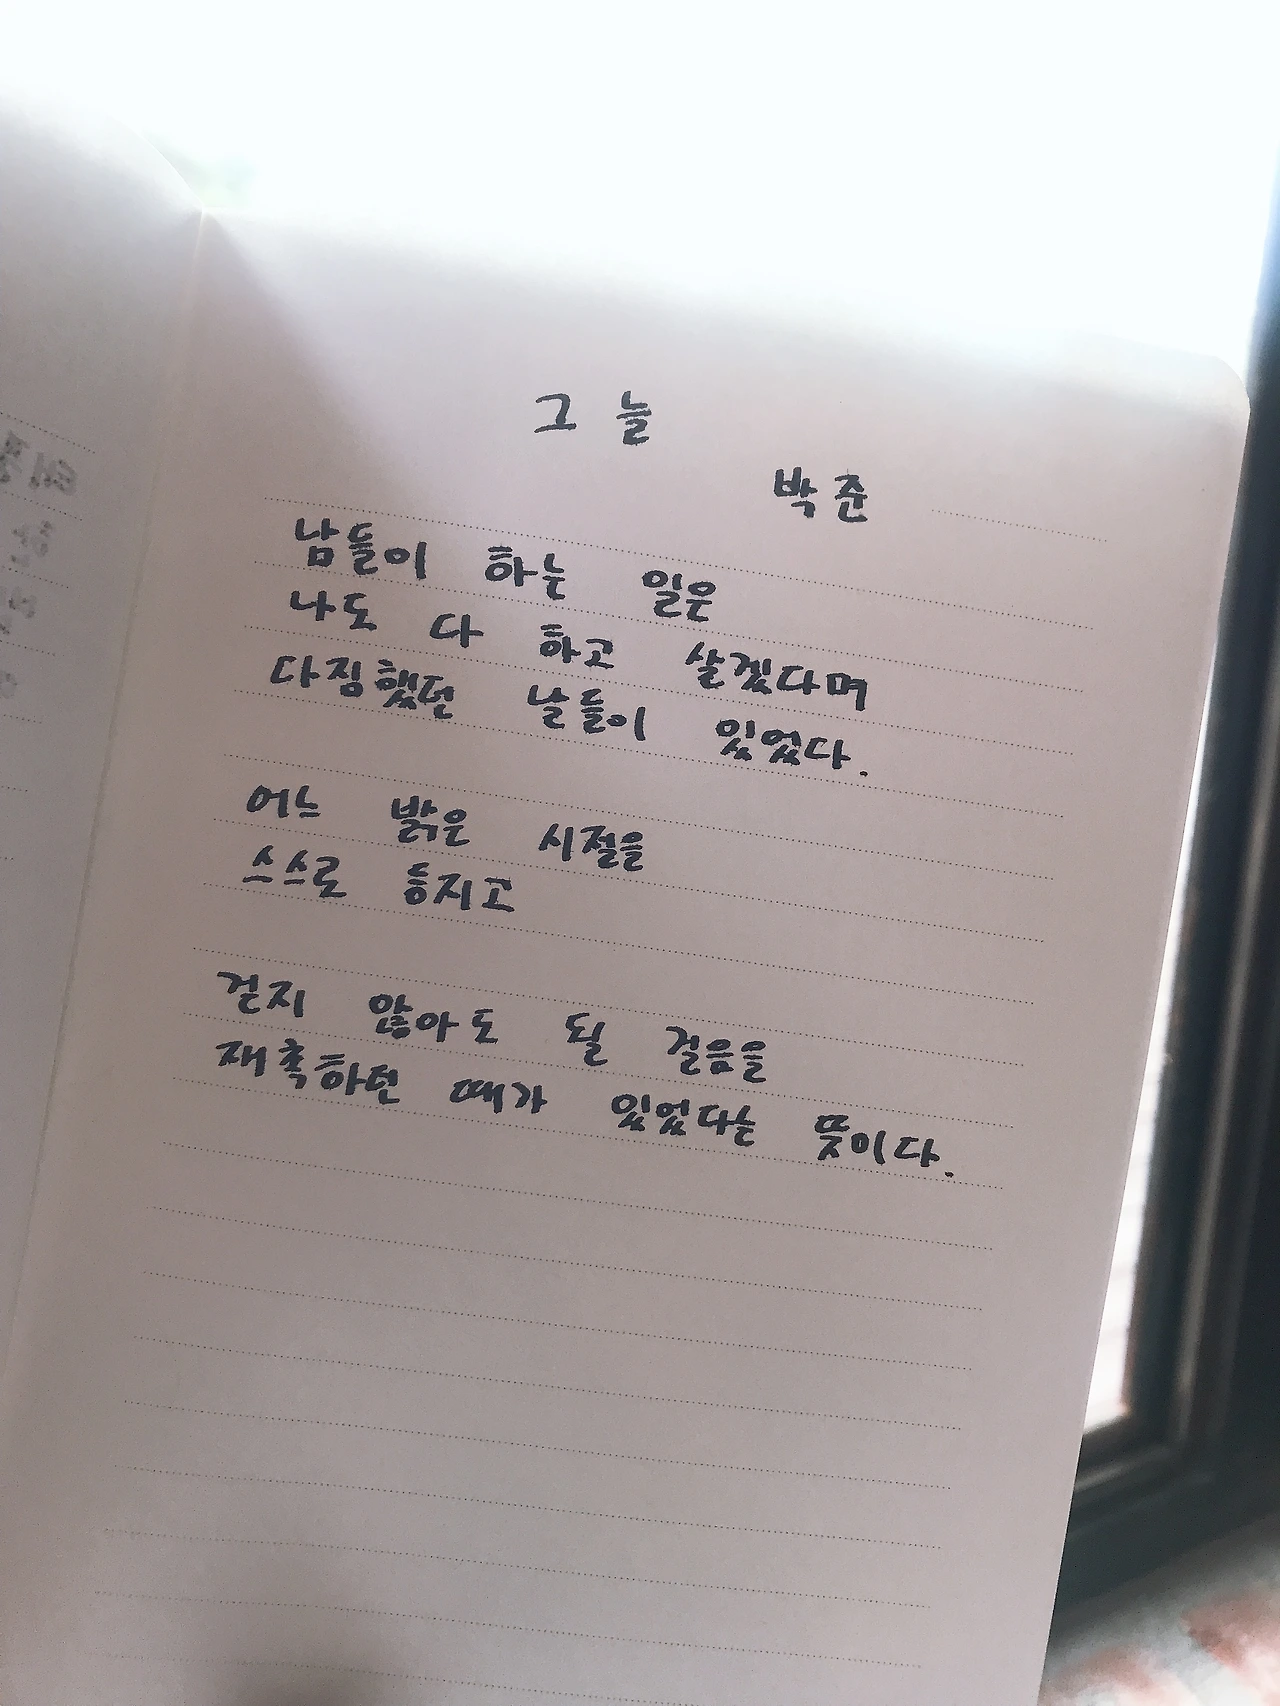 그늘
박준
남들이 하는 일은
나도 다 하고 살겠다며
다짐했던 날들이 있었다.
어느 밝은 시절을
스스로 등지고
걷지 않아도 될 걸음을
재촉하던 때가 있었다는 뜻이다.